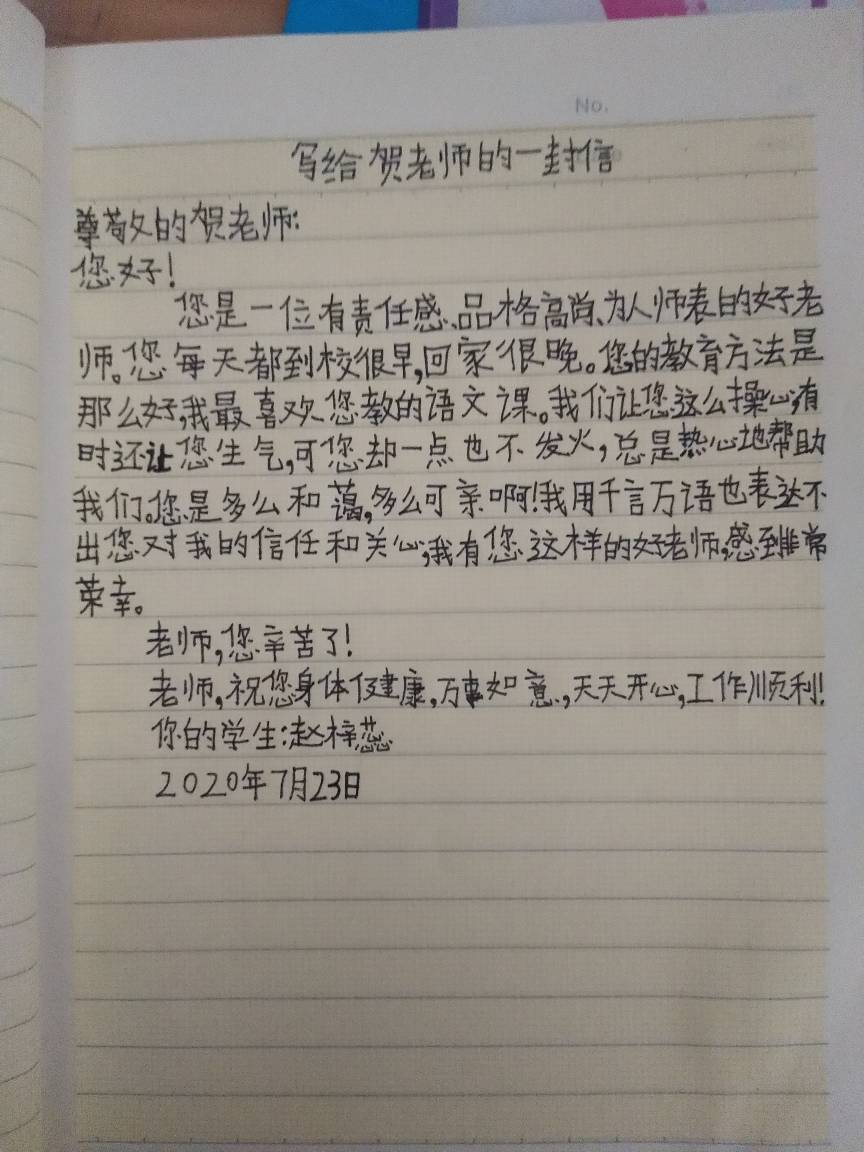 No.
写给贺老师的一封信
尊敬的贺老师:
您好!
您是一位有责任感、品格高尚、为人师表的好老
师。您每天都到校很早,回家很晚。您的教育方法是
那么好,我最喜欢您教的语文课。我们让您这么操心,有
时还让您生气,可您却一点也不发火,总是热心地帮助
我们。您是多么和蔼,多么可亲啊!我用千言万语也表达不
出您对我的信任和关心,我有您这样的好老师,感到非常
荣幸。
老师,您辛苦了!
老师,祝您身体健康,万事如意,天天开心,工作顺利!
你的学生:赵梓蕊
2020年7月23日